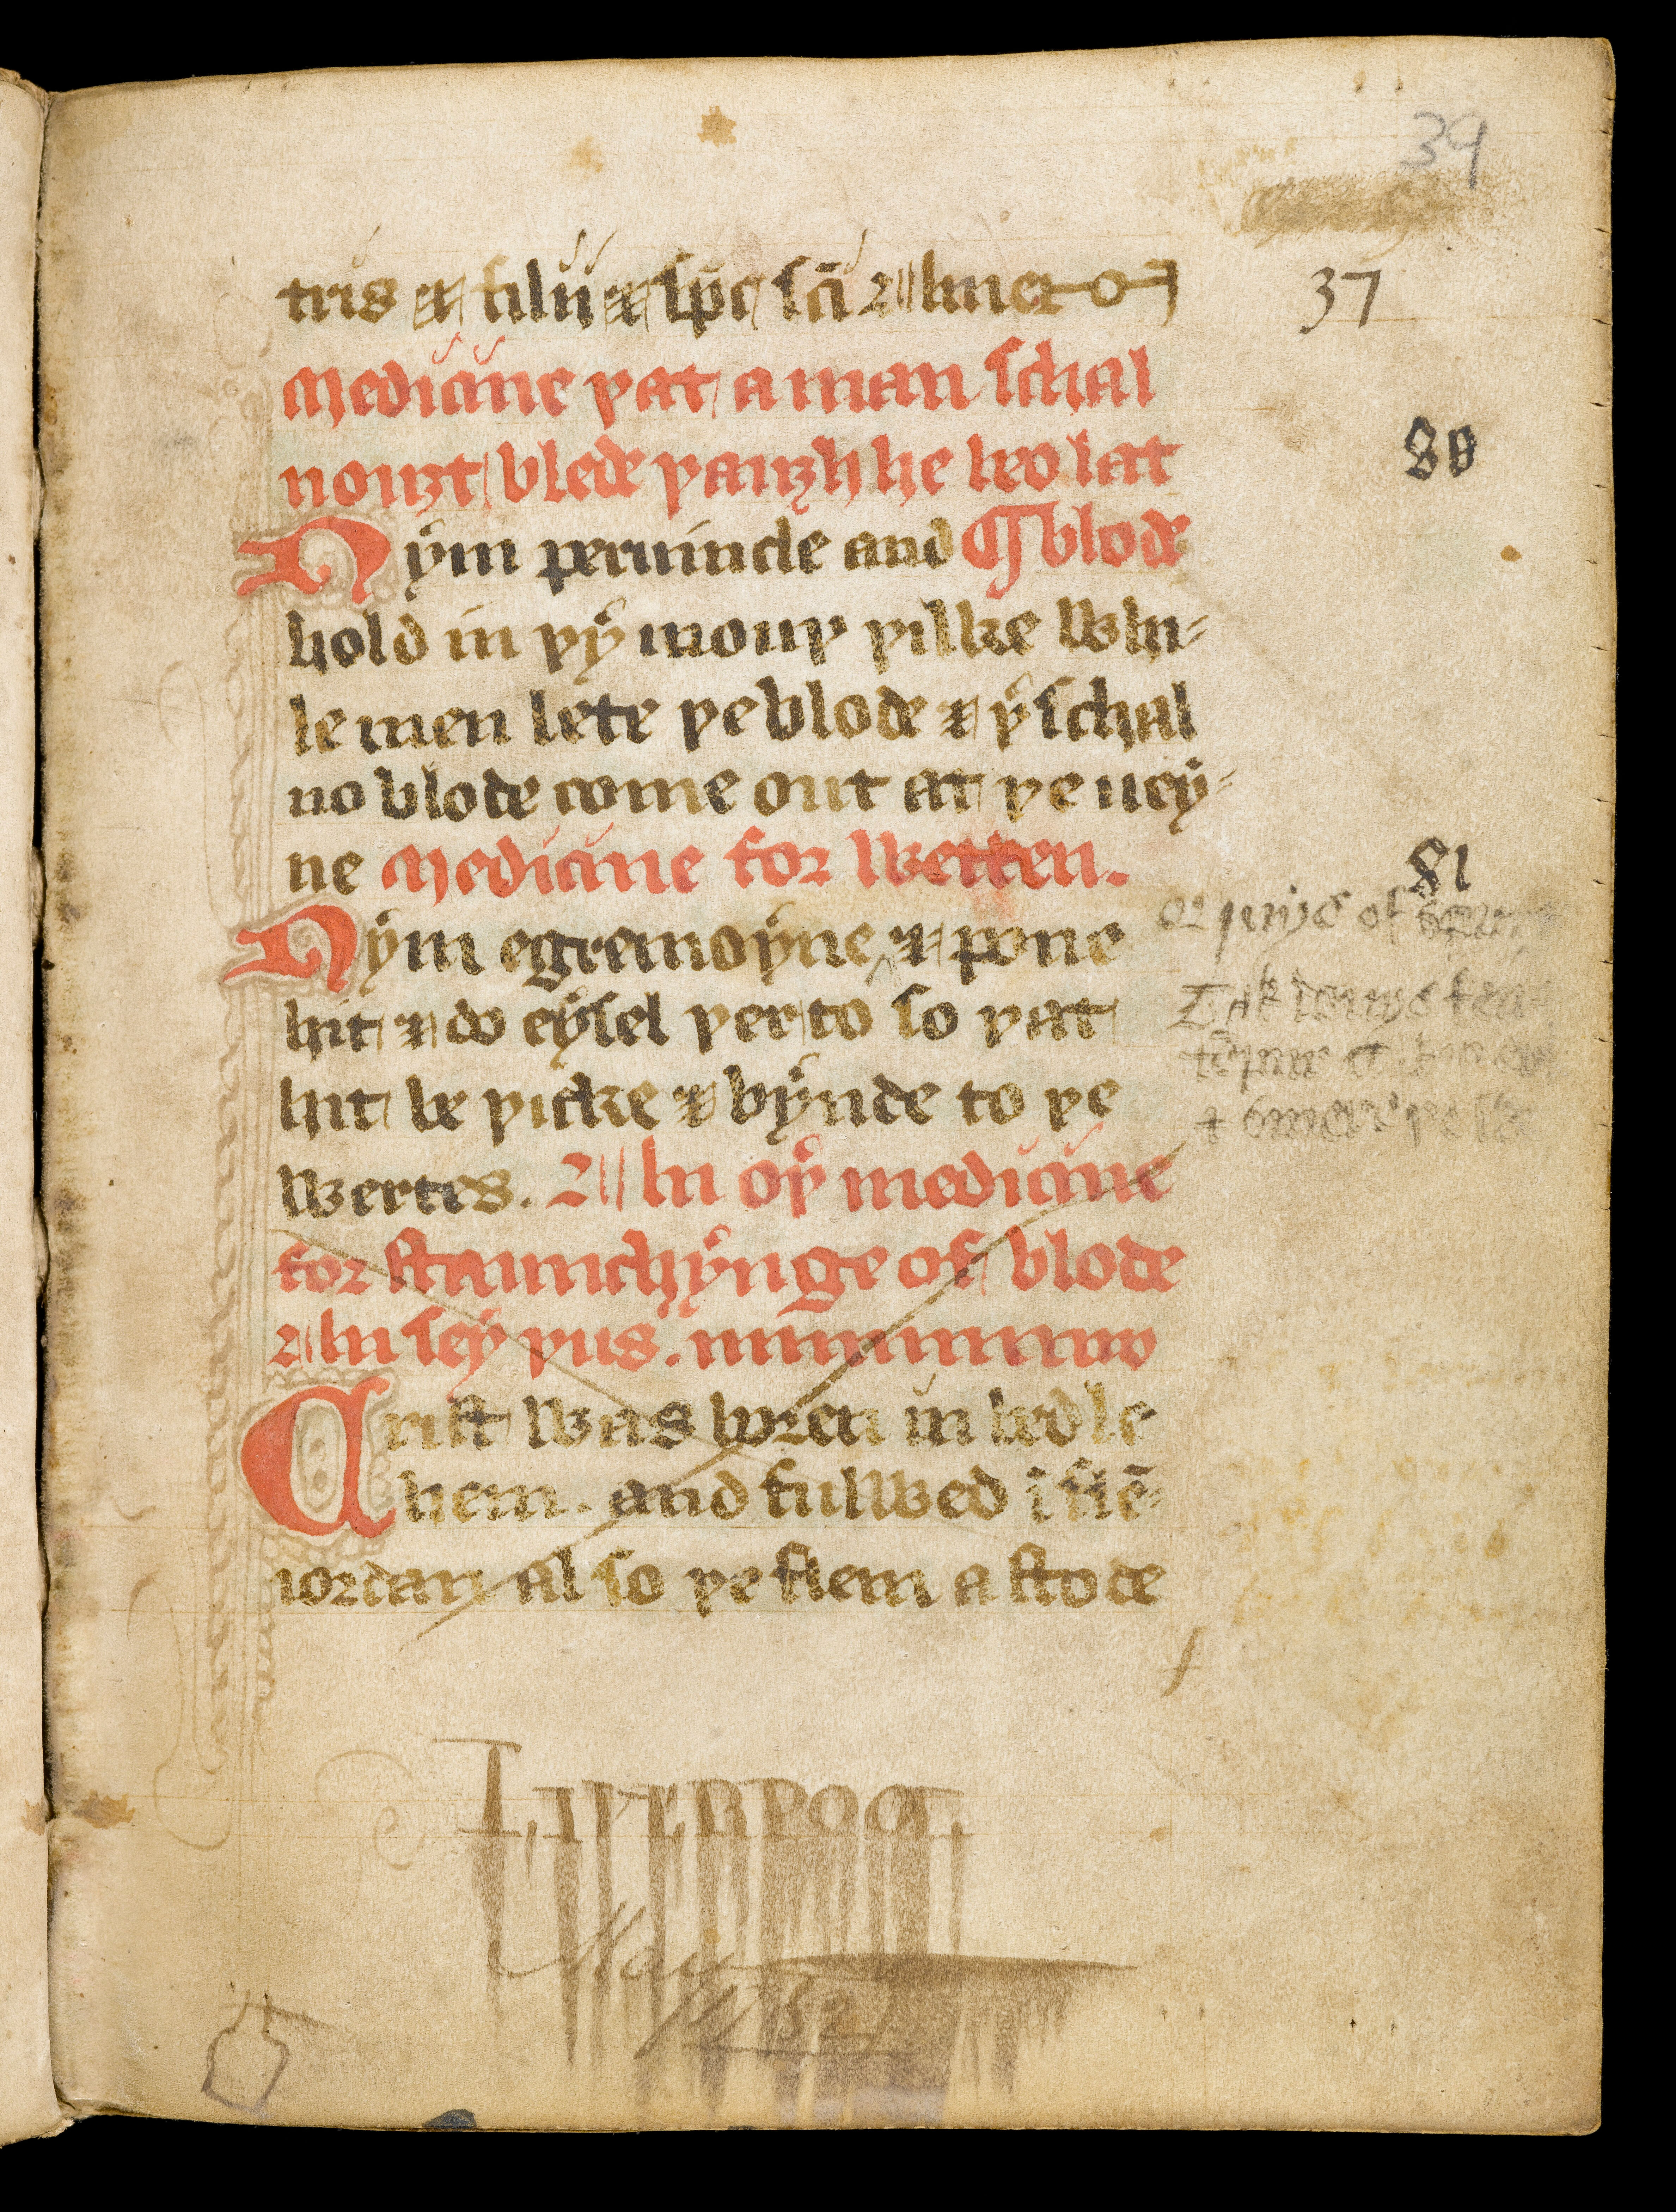 39
tris & filii & sp̄c sc̄i ⁊ hiner
37
Medicine þat a man schal
nouȝt blede þauȝh he beo lat
80
Nẏm peruincle and ¶ blode
hold in þẏ mouþ þilke whi-
le men lete þe blode & þʳ schal
no blode come out at þe ueẏ-
ne Medicine for werten.
81
Nẏm egremoẏne & pone
hit & do eẏsel þerto so þat
hit be þicke & bẏnde to þe
wertes. An oþʳ medicine
for staunchẏnge of blode
An seẏ þus.
Crist was boren in bedle
hem. and fulwed ī flē-
iordan al so þe flem astode
Liverpool
May